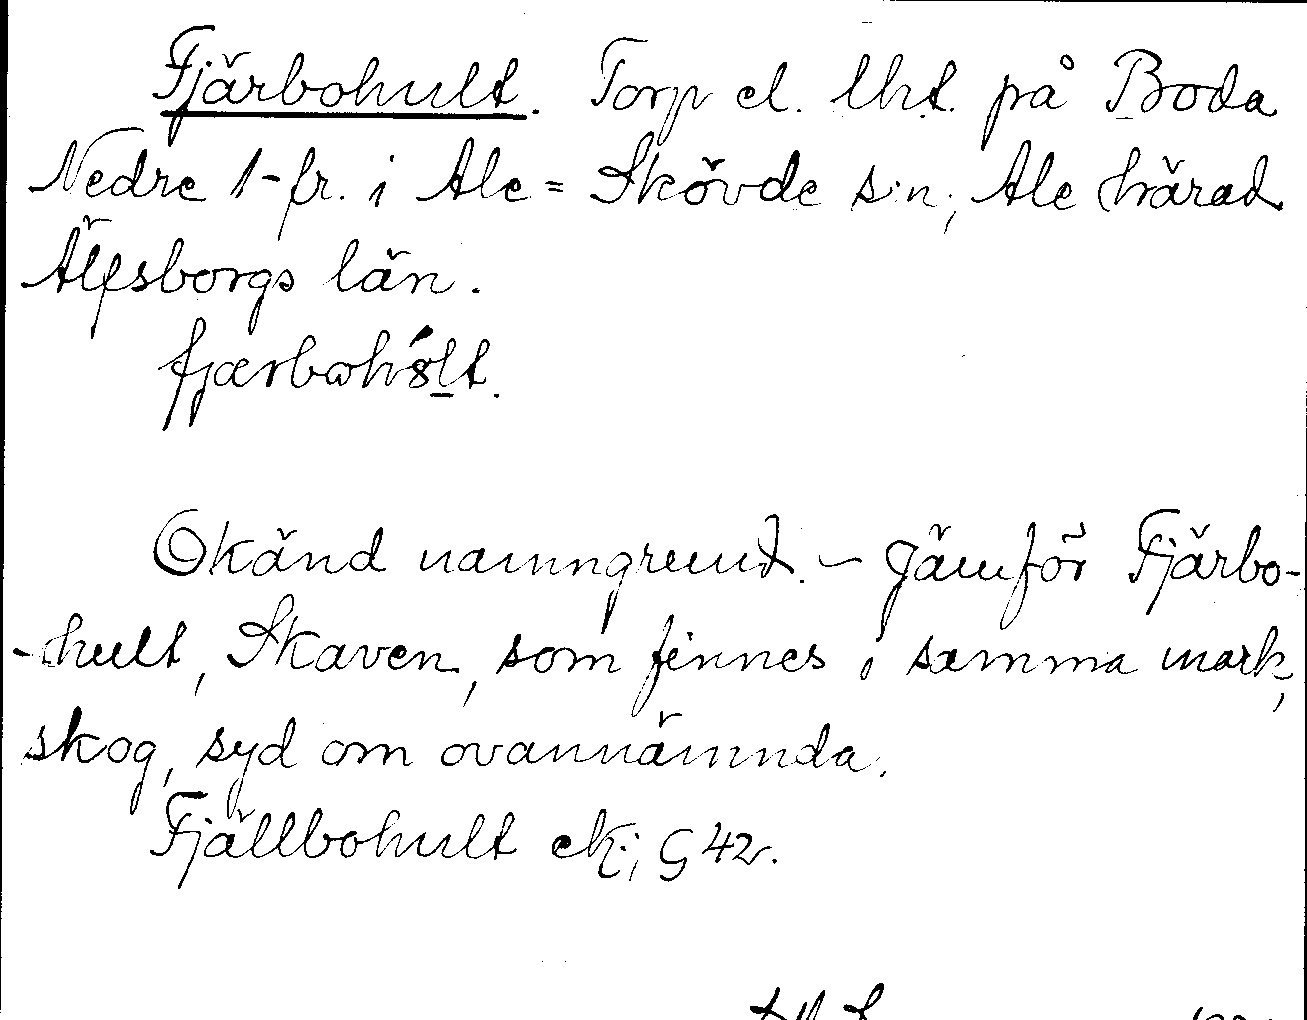 Fjärbohult. Torp el. lht. på Boda
Nedre 1-fr. i Ale = Skövde s:n, Ale härad
Älfsborgs län.
fjærbωhólt.
Okänd namngrund. – Jämför Fjärbo-
-hult, Skaven, som finnes i samma mark,
skog, syd om ovannämnda.
Fjällbohult ek.; G 42.